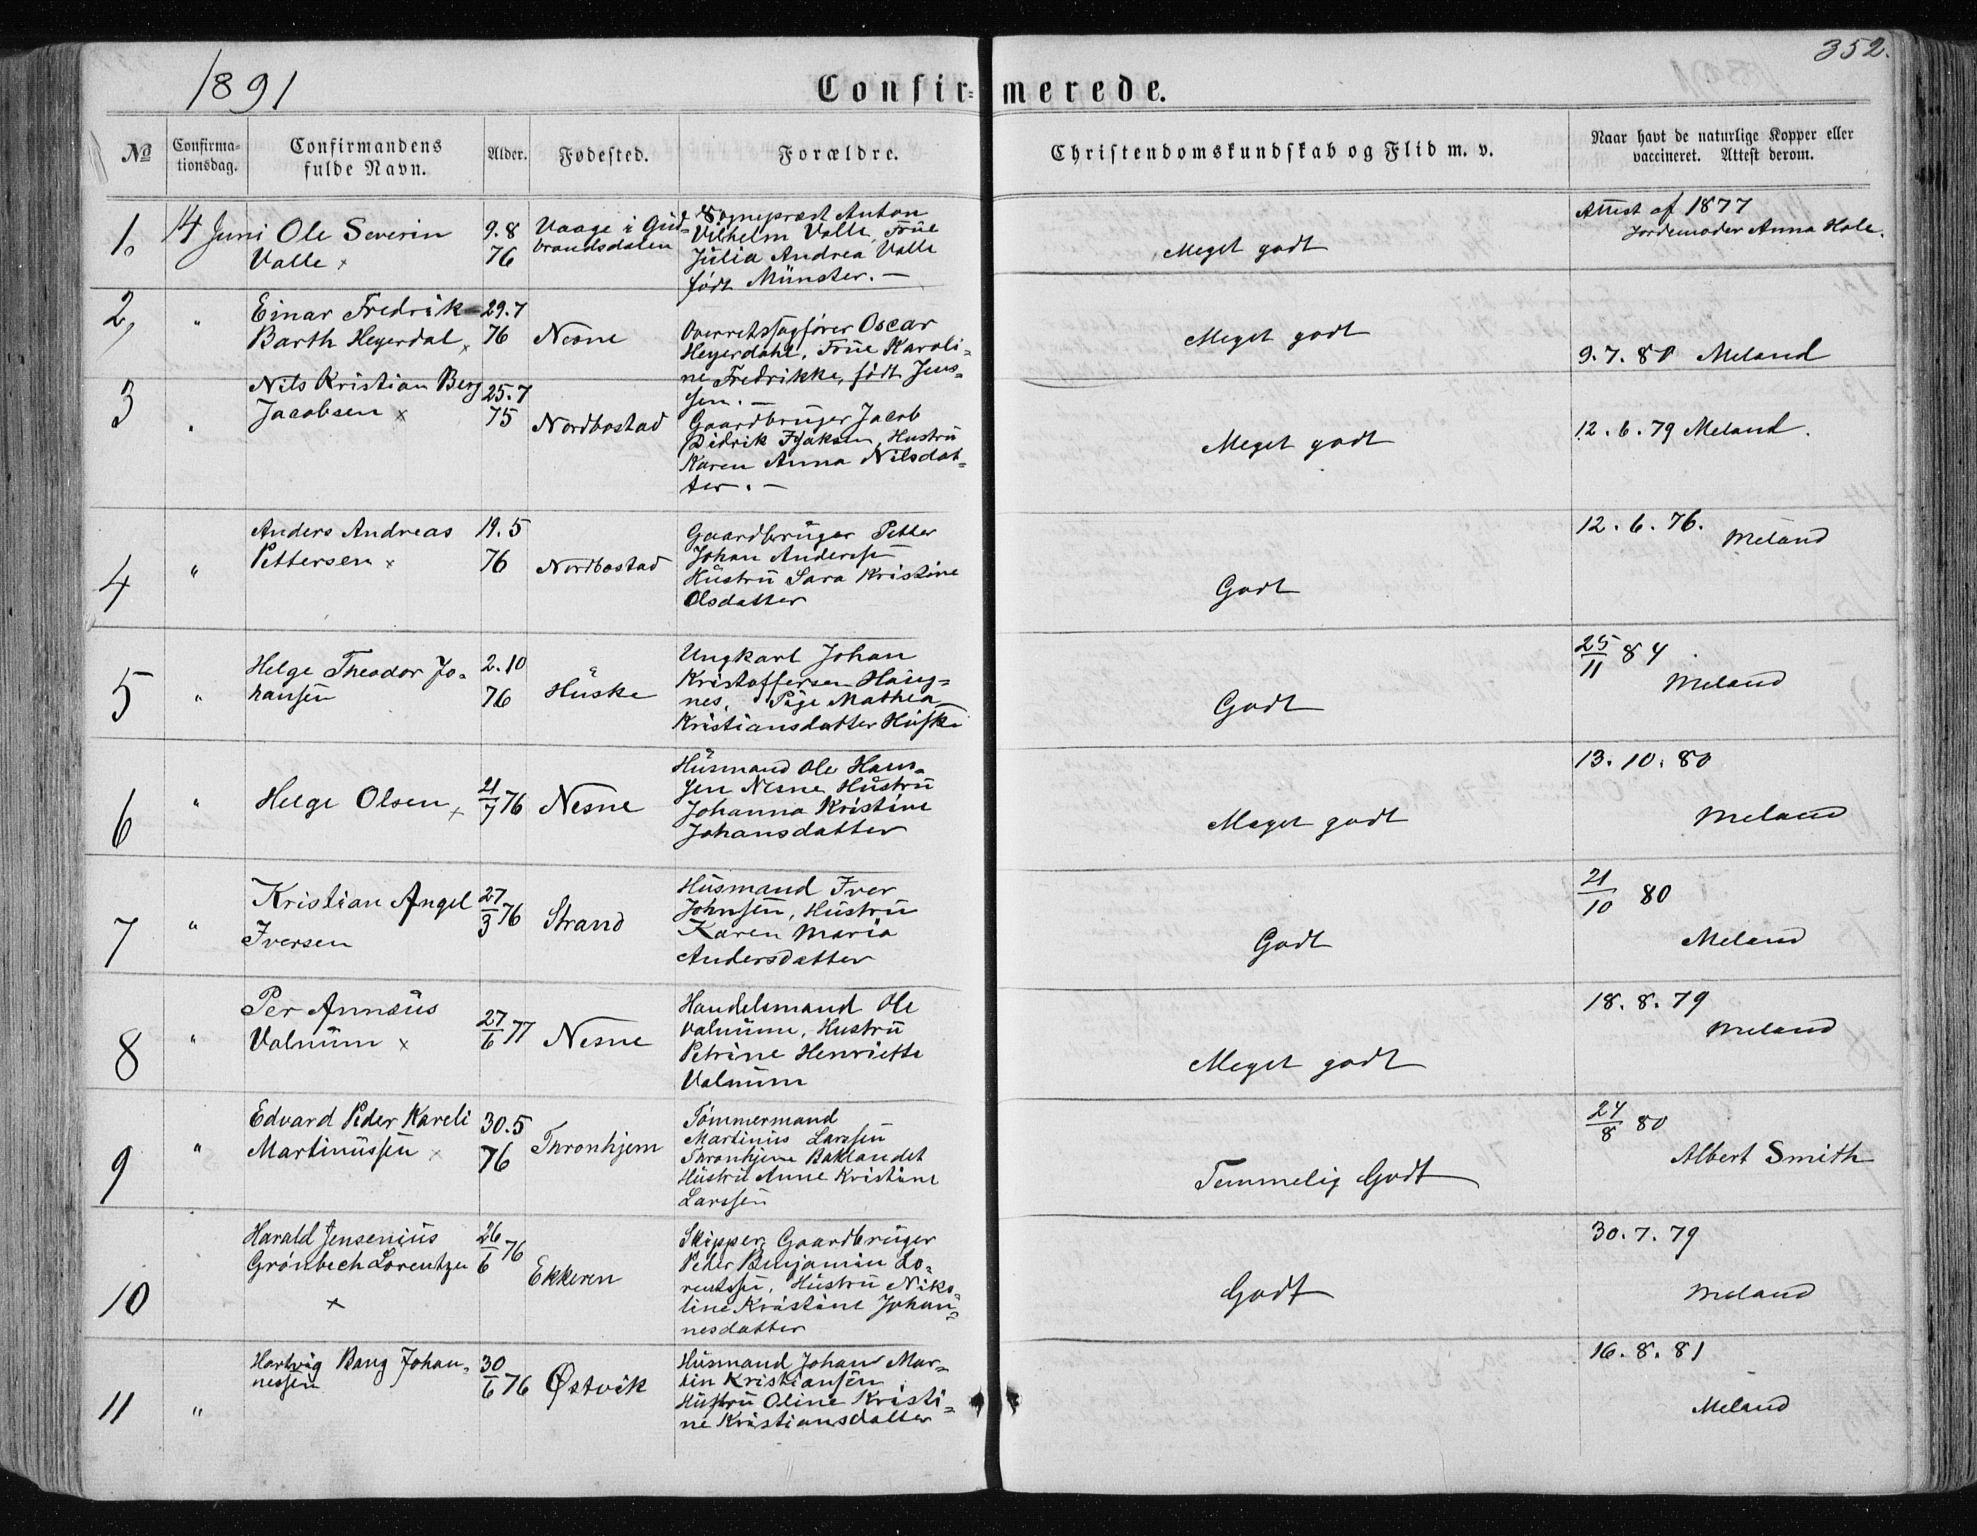 352.
1891
Confirmerede.
No
Confirmationsdag.
Confirmandens fulde Navn.
Alder.
Fødested.
Forældre.
Christendomskundskab og Flid m. v.
Naar havt de naturlige Kopper eller vaccineret. Attest derom.
1.
14 Juni
Ole Severin
Valle
9.8
76
Vaage i Gud=
brandsdalen
Sognepræst Anton
Vilhelm Valle, Frue
Julia Andrea Valle
født Münster. —
Meget godt
Attest af 1877
Jordemoder Anna Hole.
2,
"
Einar Fredrik
Barth Heyerdal
29.7
76
Nesne
Overretssagfører Oscar
Heyerdahl, Frue Karoli=
ne Fredrikke, født Jens=
sen. —
Meget godt
9.7.80 Meland
3
"
Nils Kristian Berg
Jacobsen x
25.7
75
Nordbostad
Gaardbruger Jacob
Didrik Isaksen, Hustru
Karen Anna Nilsdat=
ter. —
Meget godt
12.6.79 Meland.
4
"
Anders Andreas
Pettersen x
19.5
76
Nordbostad
Gaardbruger Petter
Johan Anderssen
Hustru Sara Kristine
Olsdatter
Godt
12.6.76.
Meland
5
"
Helge Theodor Jo=
hansen
2.10
76
Huske
Ungkarl Johan
Kristoffersen Haug=
nes, Pige Mathea
Kristiansdatter Huske
Godt
25/11 84
Meland
6
"
Helge Olsen x
21/7 76
Nesne
Husmand Ole Han=
sen Nesne Hustru
Johanna Kristine
Johansdatter
Meget godt
13.10.80
Meland
7
"
Kristian Angel
Iversen
27/3 76
Strand
Husmand Iver
Johnsen, Hustru
Karen Maria
Andersdatter
Godt
21/10 80
Meland
8
"
Per Annæus
Valnum x
27/6 77
Nesne
Handelsmand Ole
Valnum, Hustru
Petrine Henriette
Valnum
Meget godt
18.8.79
Meland
9
"
Edvard Peder Kareli
Martinussen x
30.5
76
Thronhjem
Tømmermand
Martinus Larssen
Thronhjem Baklandet
Hustru Anne Kristine
Larssen
Temmelig Godt
24/8 80
Albert Smith
10
Harald Jensenius
Grønbech Lorentzen
x
26/6 76
Ekkeren
Skipper, Gaardbruger
Peter Benjamin Lo=
rentsen, Hustru Niko=
line Kristine Johan=
nesdatter
Godt
30.7.79
Meland
11
"
Hartvig Bang Johan=
nessen
30/6 76
Østvik
Husmand Johan Mar=
tin Kristiansen
Hustru Oline Kristi=
ne Kristiansdatter
16.8.81
Meland